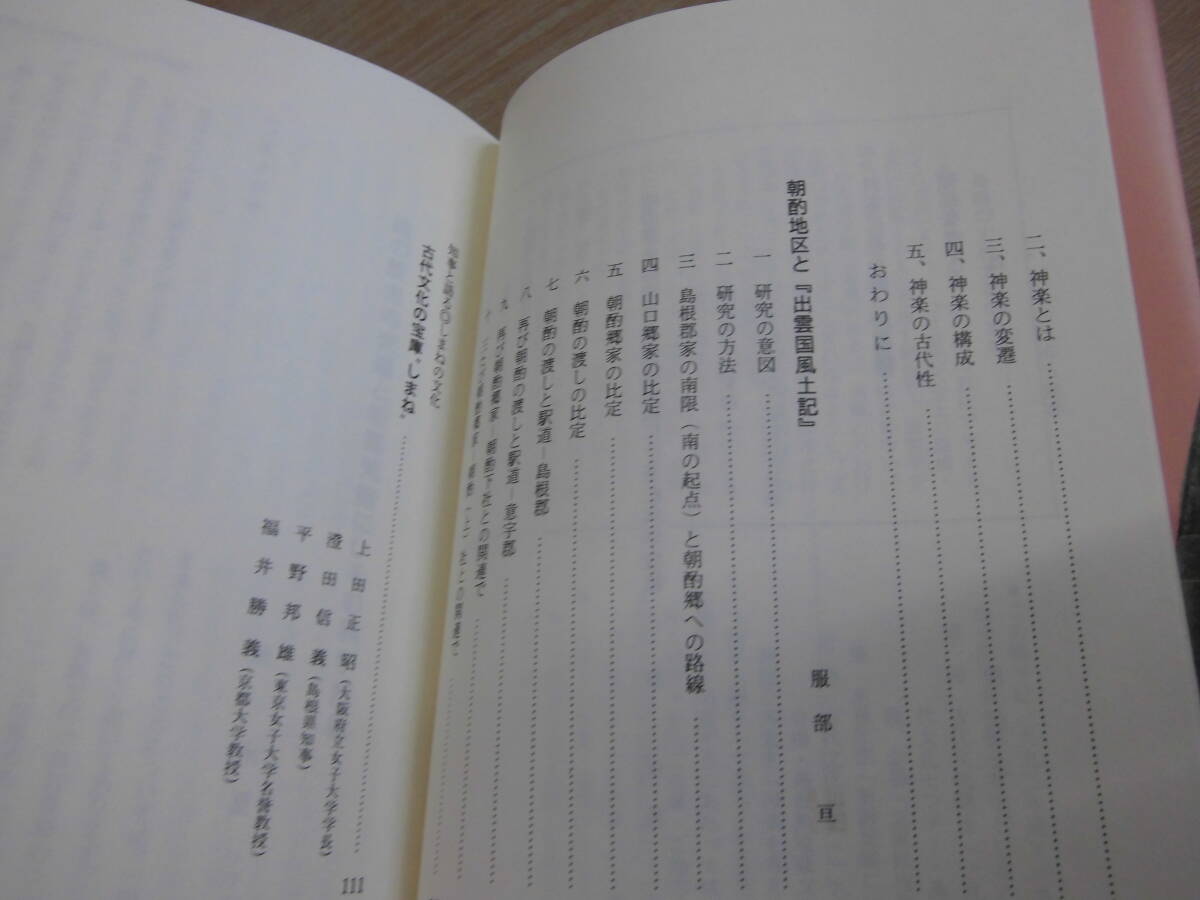 二、神楽とは
三、神楽の変遷
四、神楽の構成
五、神楽の古代性
おわりに
朝酌地区と『出雲国風土記』
服部 亘
一 研究の意図
二 研究の方法
三 島根郡家の南限(南の起点)と朝酌郷への路線
四 山口郷家の比定
五 朝酌郷家の比定
六 朝酌の渡しの比定
七 朝酌の渡しと駅道―島根郡
八 再び朝酌の渡しと駅道―意宇郡
九 再び朝酌郷家―朝酌下社との関連で
知事と語る〇しまねの文化
古代文化の宝庫“しまね”
上田正昭(大阪府立女子大学学長)
澄田信義(島根県知事)
平野邦雄(東京女子大学名誉教授)
福井勝義(京都大学教授)
111